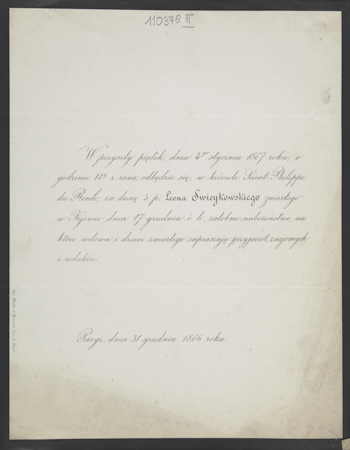 110376 III
W przyszły piątek, dnia 4go stycznia 1867 roku, o
godzinie 11ej z rana, odbędzie się, w kościele Saint Philippe
du Roule, za duszę ś. p. Leona Świeykowskiego zmarłego
w Kijowie dnia 17 grudnia r. b. żałobne nabożeństwo na
które wdowa i dzieci zmarłego zapraszają przyjaciół, znajomych
i rodaków.
Paryż, dnia 31 grudnia 1866 roku